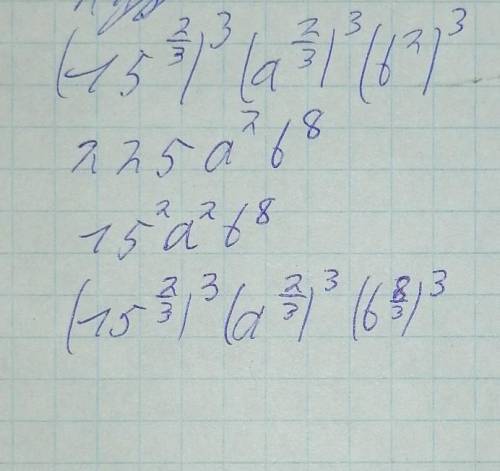 (15^{2/3})^3 (a^{2/3})^3 (b^2)^3
225 a^2 b^8
15^2 a^2 b^8
(15^{2/3})^3 (a^{2/3})^3 (b^{8/3})^3